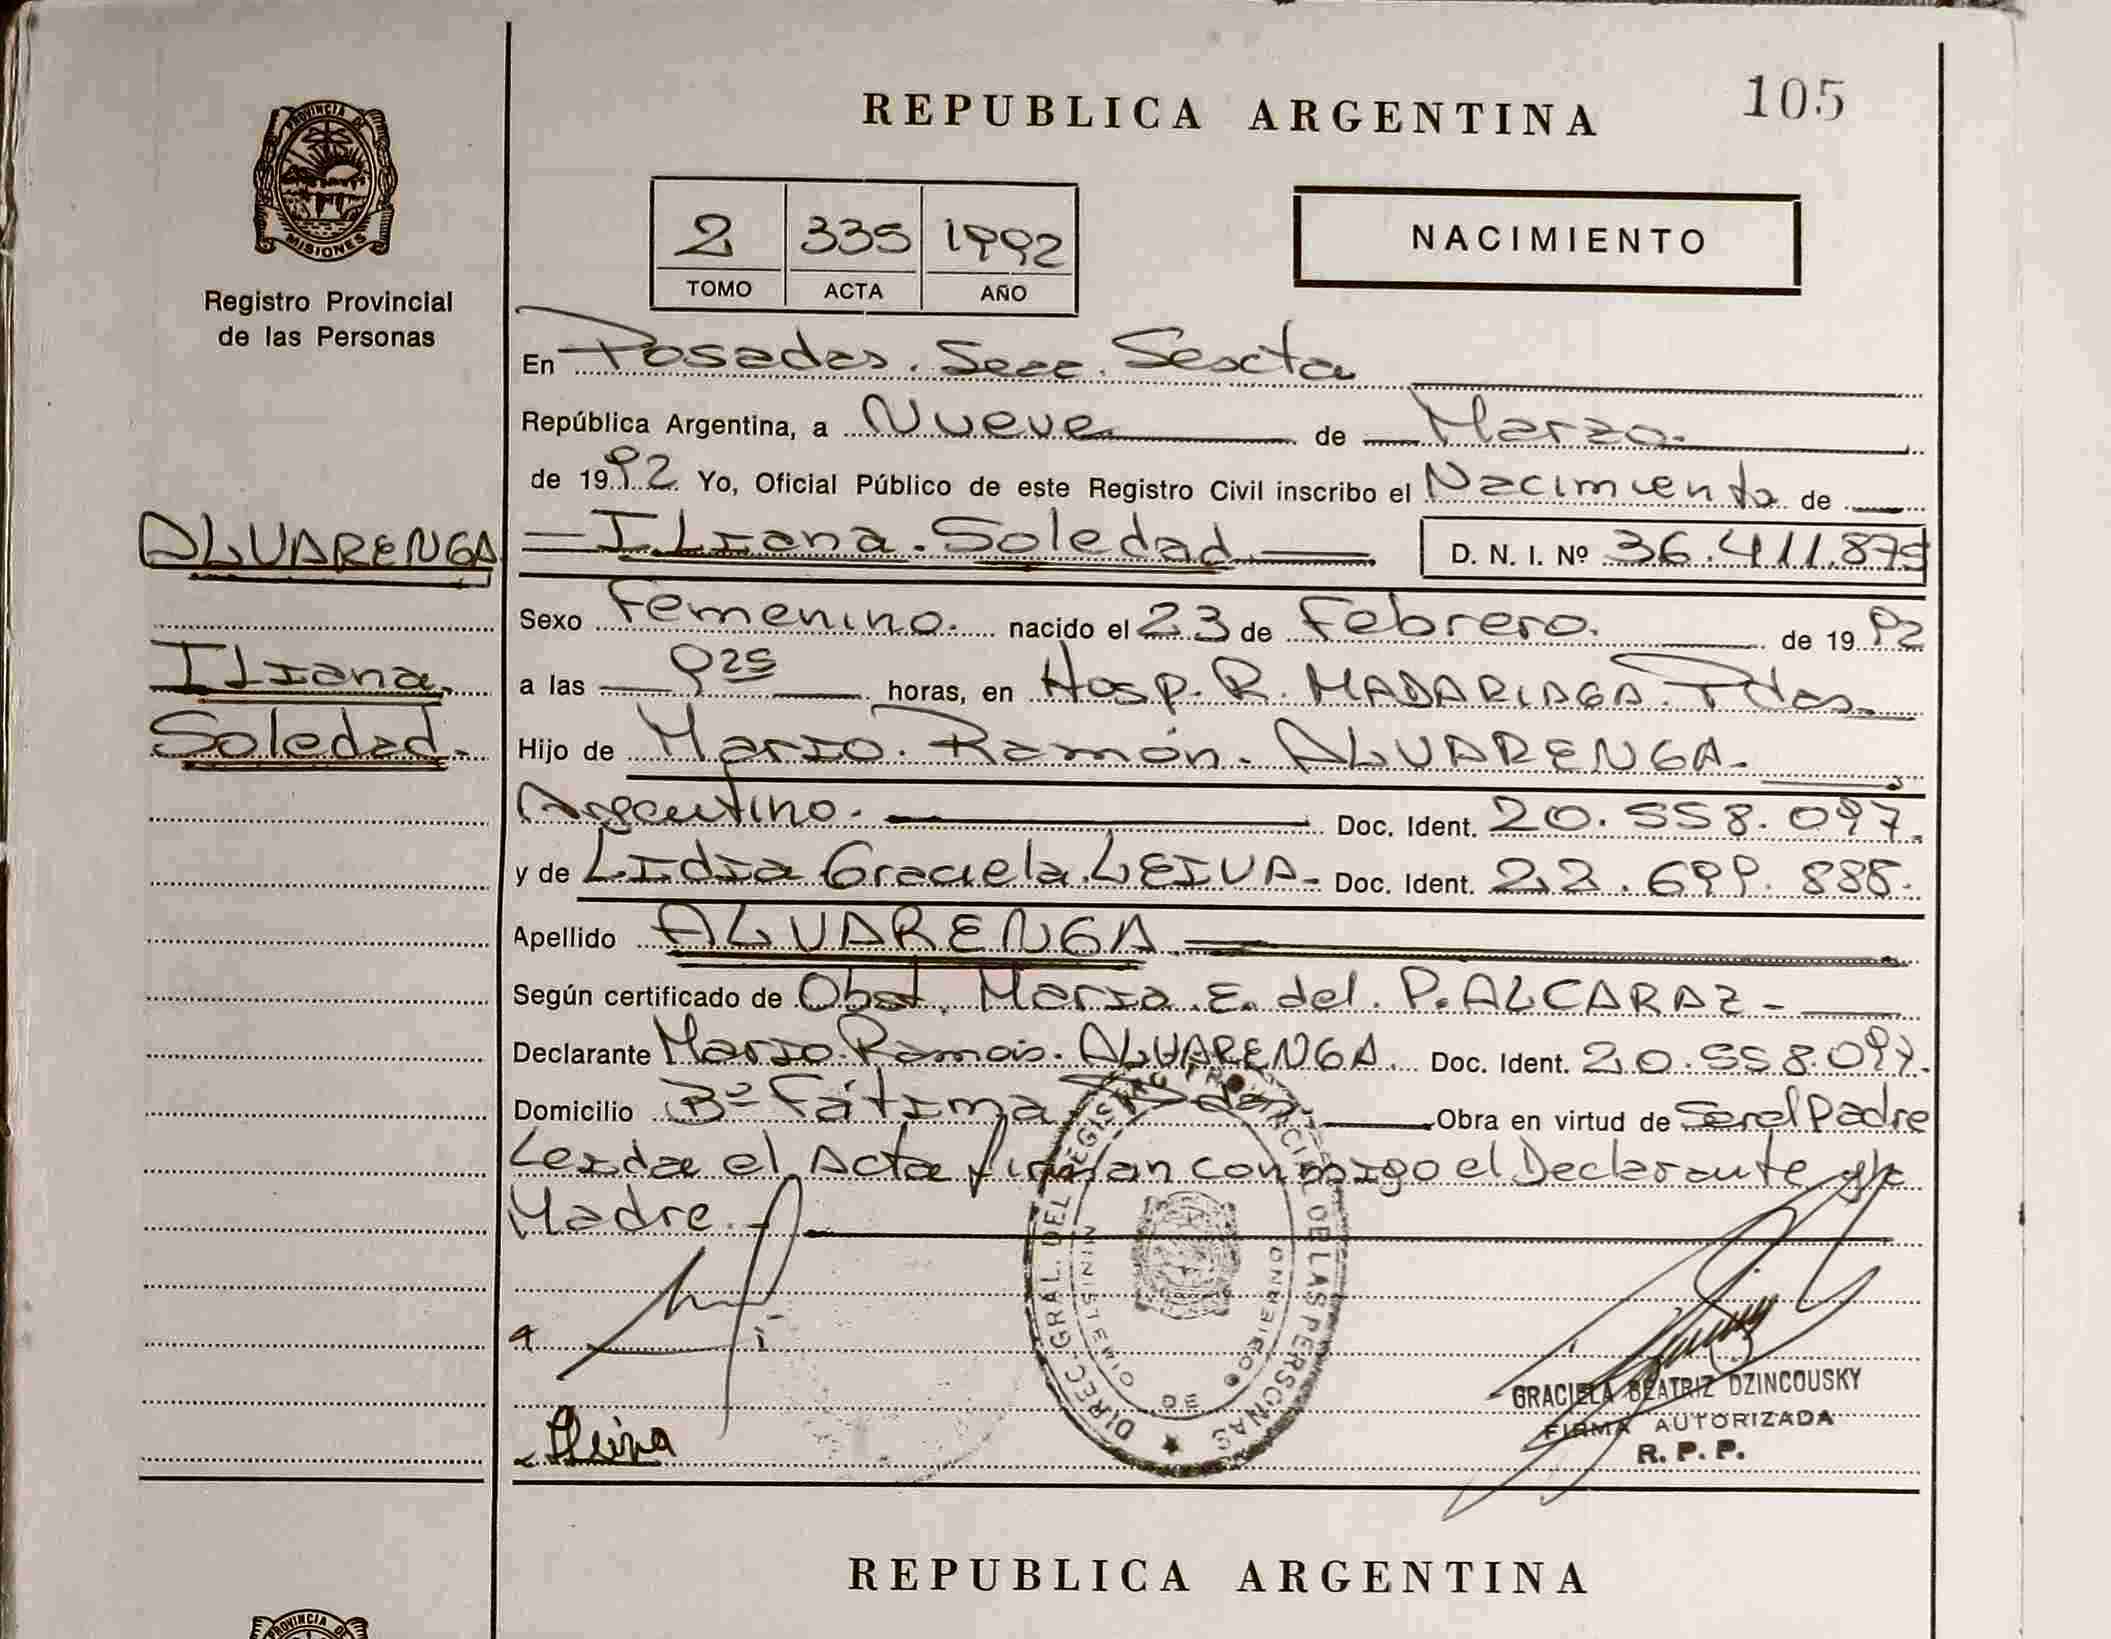 REPUBLICA ARGENTINA
105
PROVINCIA DE
MISIONES
Registro Provincial
de las Personas
2 335 1992
TOMO ACTA AÑO
NACIMIENTO
En Posadas. Secc. Sexta
República Argentina, a Nueve de Marzo.
de 1992 Yo, Oficial Público de este Registro Civil inscribo el Nacimiento de
ALVARENGA
Iliana
Soledad.
Iliana. Soledad D. N. I. Nº 36.411.879
Sexo Femenino. nacido el 23 de Febrero. de 1992
a las 9 25 horas, en Hosp. R. MADARIAGA. Pdas.
Hijo de Mario. Ramón. ALVARENGA.
Argentino. Doc. Ident. 20.558.097.
y de Lidia Graciela LEIVA. Doc. Ident. 22.699.885.
Apellido ALVARENGA
Según certificado de Obst. Maria. E. del. P. ALCARAZ-
Declarante Mario. Ramón. ALVARENGA. Doc. Ident. 20.558.097.
Domicilio Bº Fátima Pdas. Obra en virtud de Ser el Padre
Leida el Acta firman conmigo el Declarante y la
Madre.
DIREC. GRAL. DEL REGISTRO PROVINCIAL DE LAS PERSONAS
MINISTERIO DE GOBIERNO
Leiva
GRACIELA BEATRIZ DZINCOUSKY
FIRMA AUTORIZADA
R. P. P.
REPUBLICA ARGENTINA
PROVINCIA DE